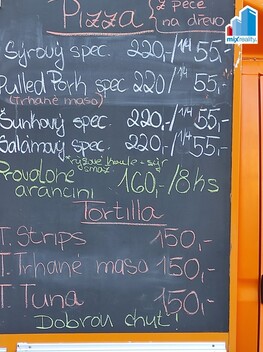 Pizza z pece
na dřevo
mixreality
Sýrový spec. 220,-/ 1/4 55,-
Pulled Pork spec 220/ 1/4 55,-
(Trhané maso)
Šunkový spec. 220,-/ 1/4 55,-
Salámový spec. 220,-/ 1/4 55,-
rýžové koule - sýr
smaž
Provolone
arancini 160,-/8 ks
Tortilla
T. Strips 150,-
T. Trhané maso 150,-
T. Tuna 150,-
Dobrou chuť!